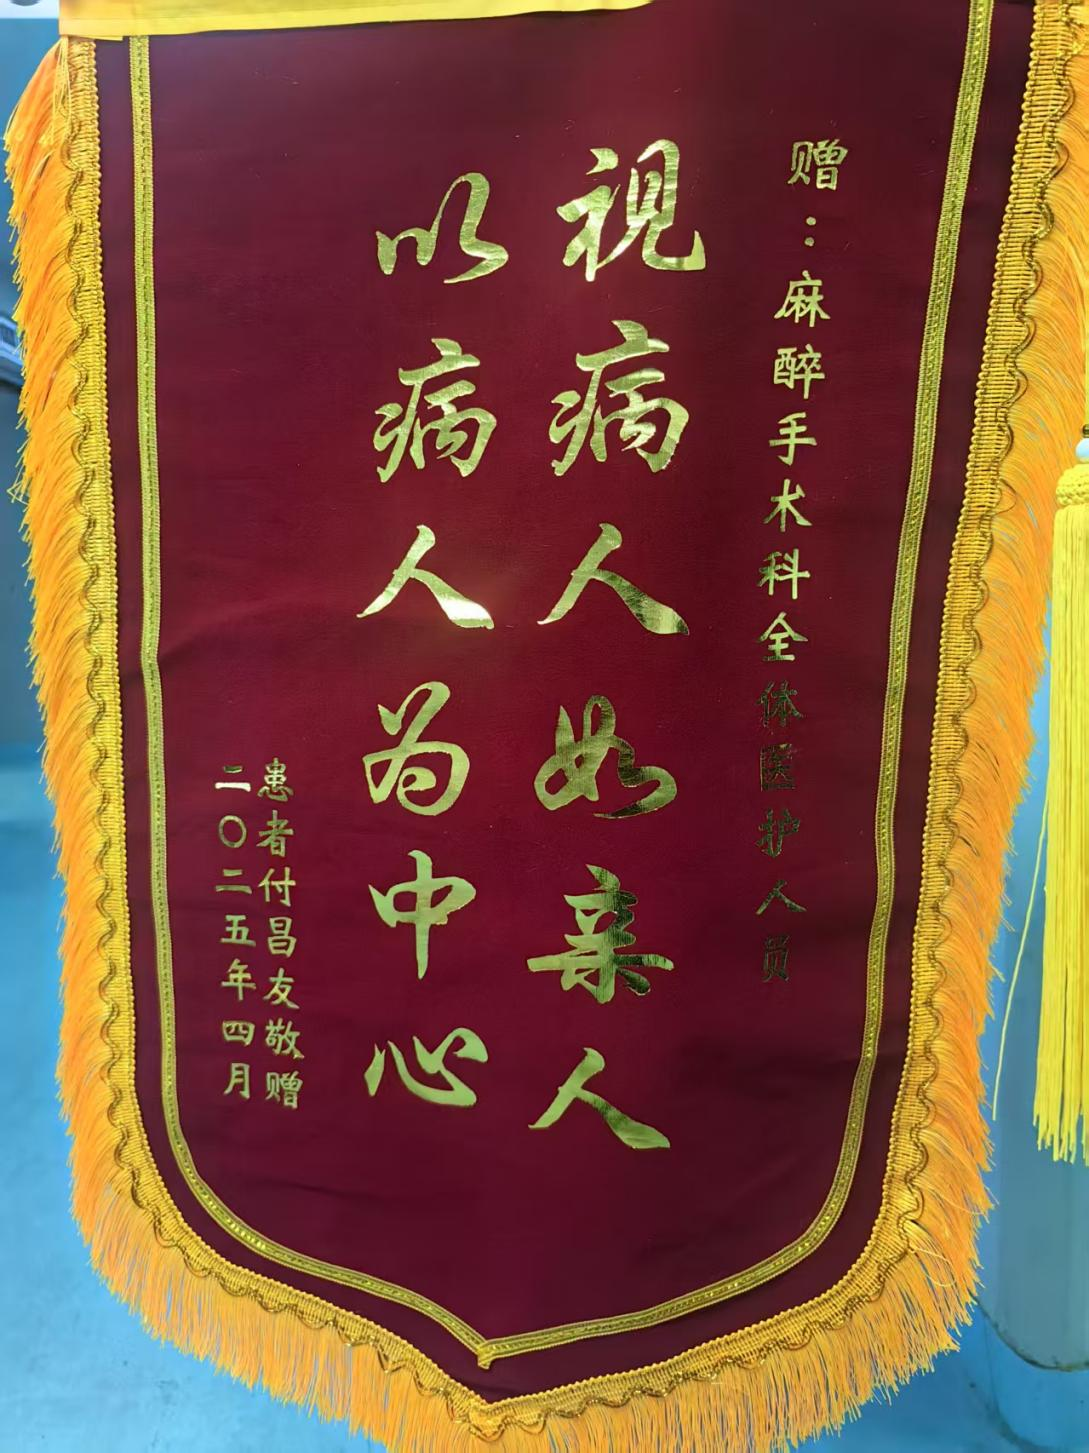 赠：麻醉手术科全体医护人员
视病人如亲人
以病人为中心
患者付昌友敬赠
二〇二五年四月